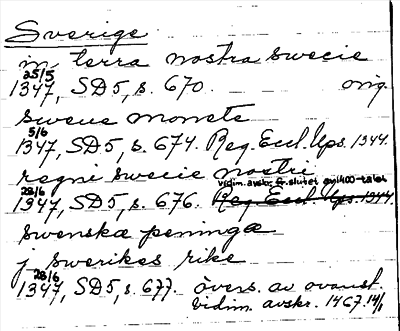 Sverige
in terra nostra swecie
25/5
1347, SD5, s. 670. orig.
sweue monete
5/6
1347, SD5, s. 674. Reg. Eccl. Ups. 1344.
regni swecie nostri
28/6 vidim. avskr. fr. slutet av 1400-talet
1347, SD5, s. 676. Reg. Eccl. Ups. 1344.
swenskæ peningæ
j swerikes rike
28/6
1347, SD5, s. 677. övers. av ovanst.
vidim. avskr. 1467.14/1